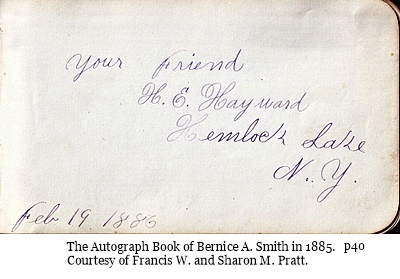 Your Friend
H. E. Hayward
Hemlock Lake
N. Y.
Feb 19. 1886
The Autograph Book of Bernice A. Smith in 1885. p40
Courtesy of Francis W. and Sharon M. Pratt.